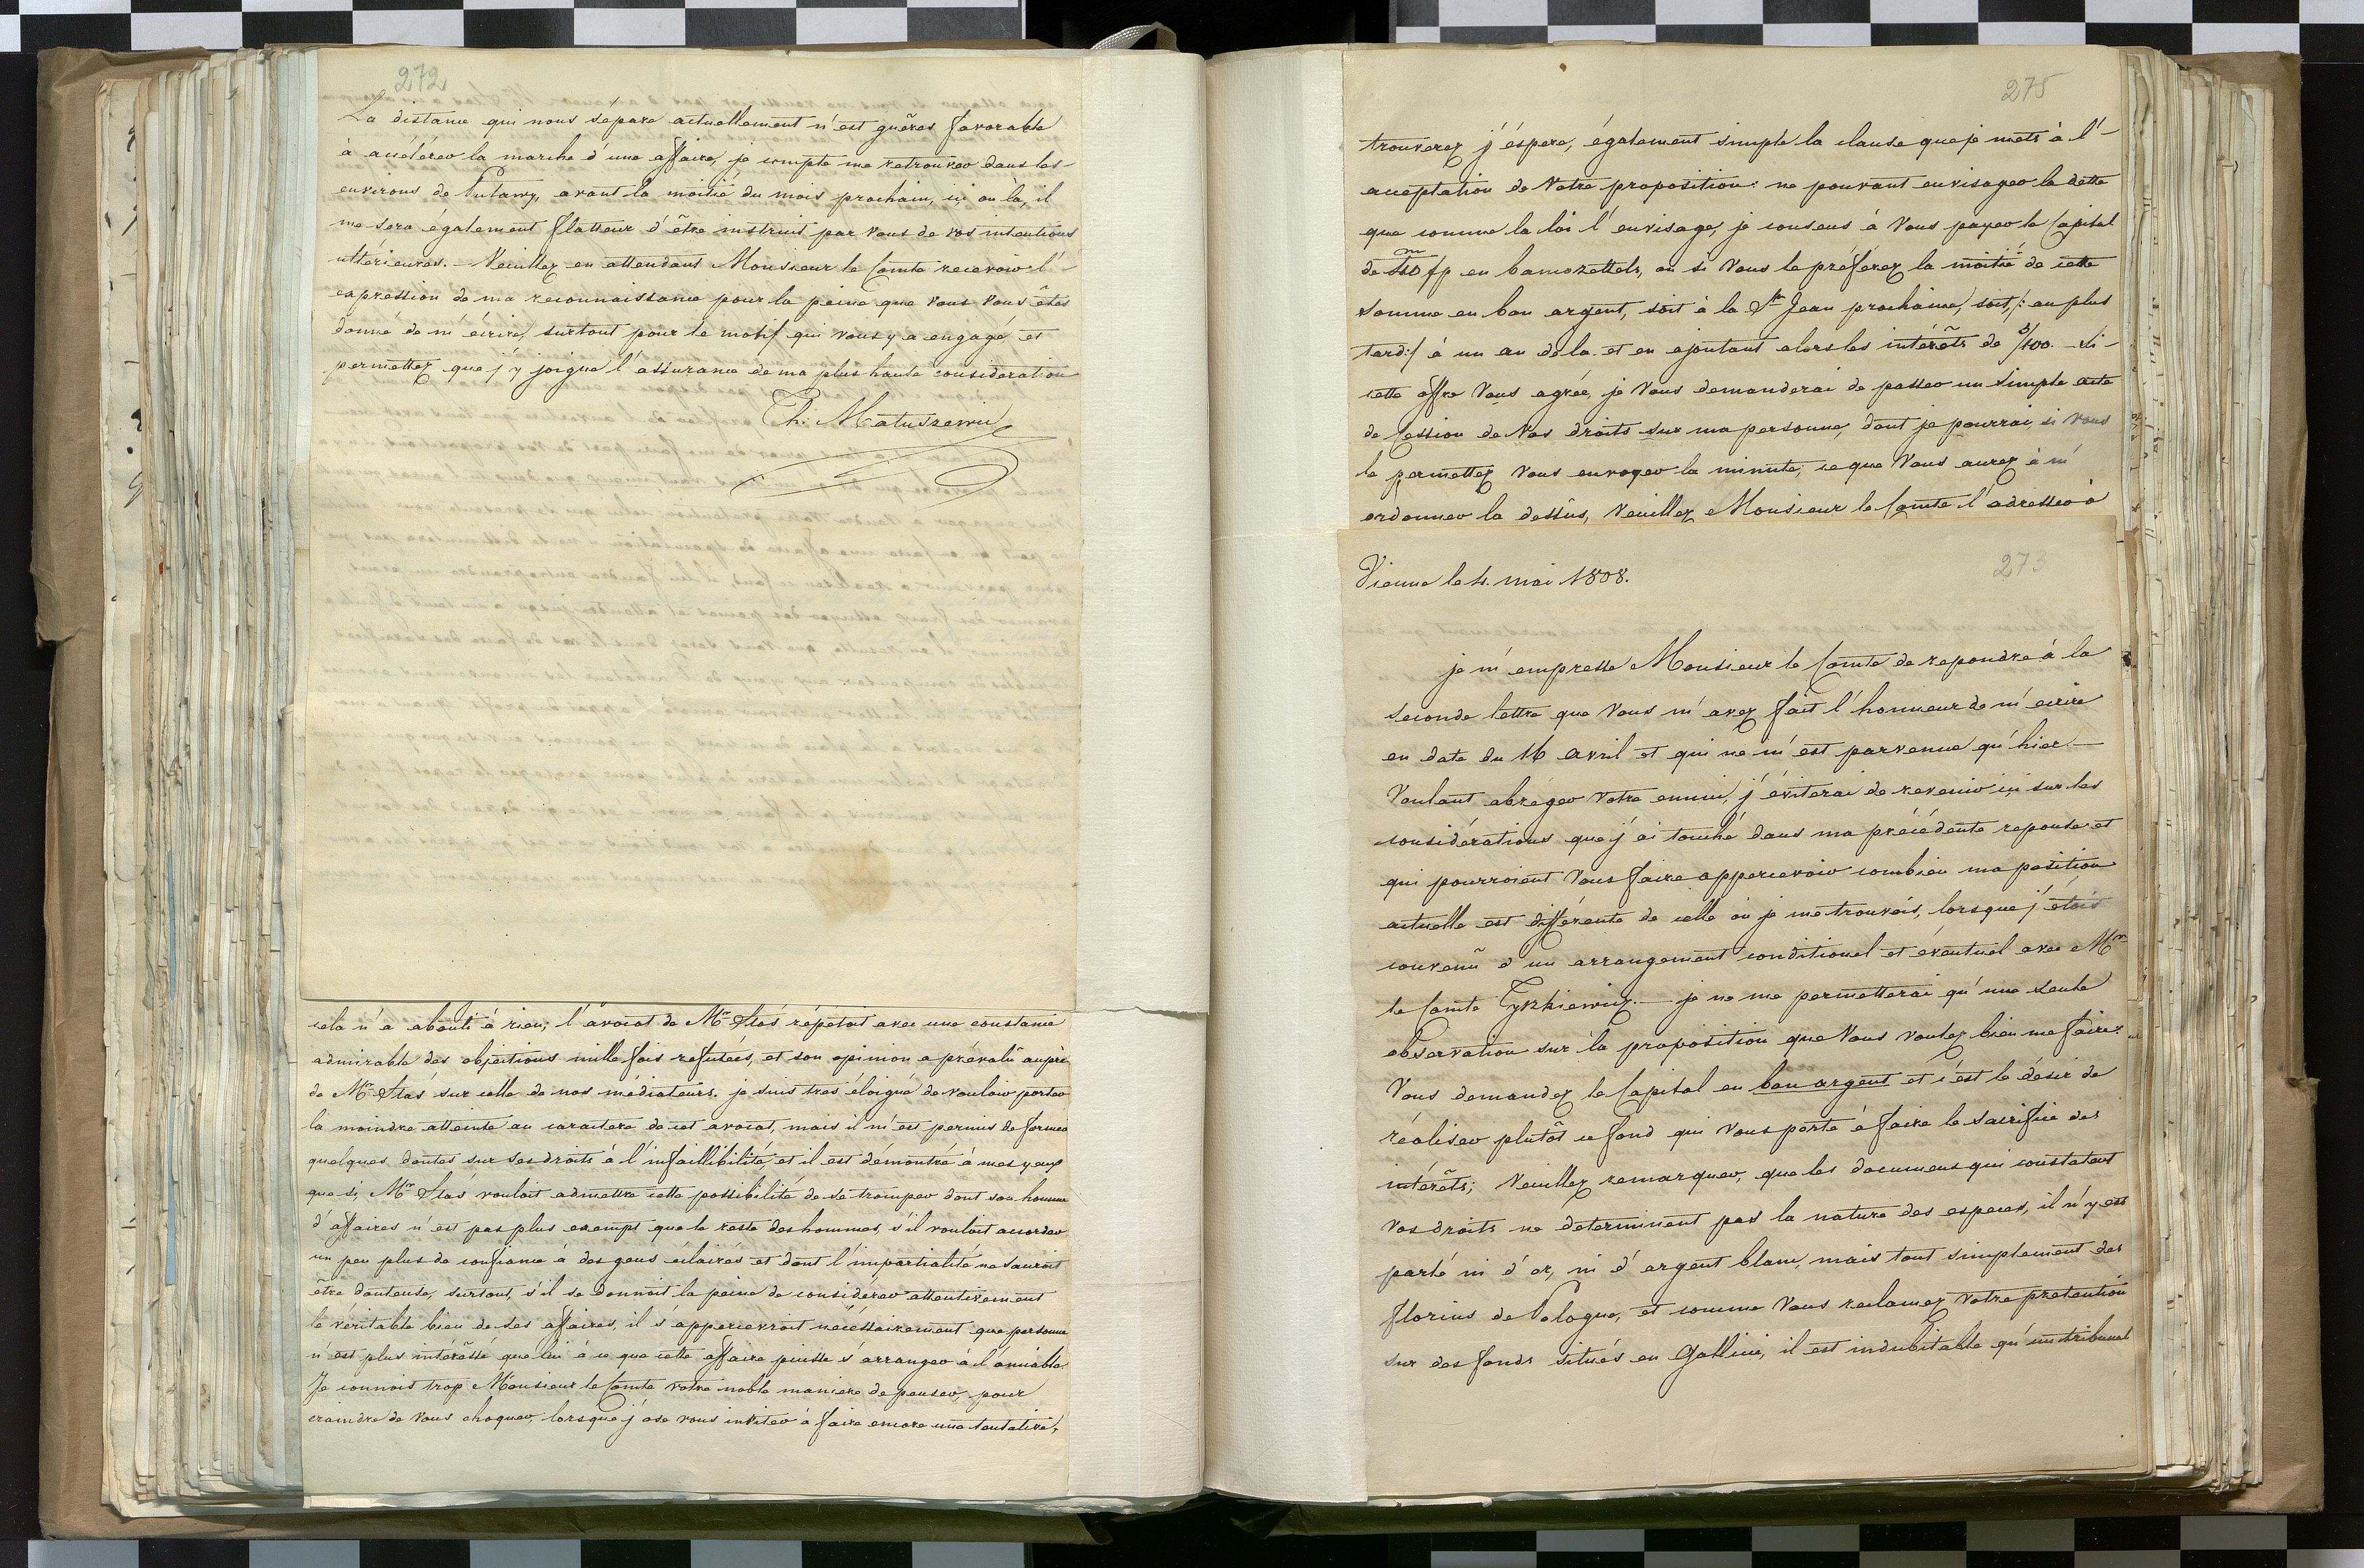 272
La distance qui nous separe actuellement n'est guères favorable
à accélérer la marche d'une affaire, je compte me retrouver dans les
environs de Pulawy, avant la moitié du mois prochain, ici ou là, il
me sera également flatteur d'être instruit par Vous de vos intentions
ultérieures. — Veuillez en attendant Monsieur le Comte recevoir l'-
expression de ma reconnaissance pour la peine que Vous Vous êtes
donné de m'écrire, surtout pour le motif qui Vous y a engagé, et
permettez que j'y joigne l'assurance de ma plus haute considération
Th: Matuszewic
cela n'a abouti à rien; l'avocat de Mr Stas répetoit avec une constance
admirable des objections mille fois refutées, et son opinion a prévalû auprès
de Mr Stas sur celle de nos médiateurs. je suis tres éloigné de vouloir porter
la moindre atteinte au caractere de cet avocat, mais il m'est permis de former
quelques doutes sur ses droits à l'infaillibilité, et il est démontré à mes yeux
que si, Mr Stas vouloit admettre cette possibilité de se tromper dont son homme
d'affaires n'est pas plus exempt que le reste des hommes, s'il vouloit accorder
un peu plus de confiance à des gens éclairés et dont l'impartialité ne sauroit
être douteuse, surtout, s'il se donnoit la peine de considerer attentivement
le véritable bien de ses affaires, il s'appercevroit nécéssairement que personne
n'est plus intéressé que lui à ce que cette affaire puisse s'arranger à l'amiable.
Je connois trop Monsieur le Comte votre noble maniere de penser, pour
craindre de Vous choquer, lorsque j'ose vous inviter à faire encore une tentative,
275
trouverez j'éspere, également simple la clause que je mets à l'-
acceptation de Votre proposition: ne pouvant envisager la dette
que comme la loi l'envisage, je consens à Vous payer le Capital
de fp en bancozettels, ou si Vous le préférez la moitié de cette
somme en bon argent, soit à la St Jean prochaine, soit /: au plus
tard :/ à un an de là et en ajoutant alors les intérêts de 5/100. — Si-
cette offre Vous agrée, je Vous demanderai de passer un simple acte
de Cession de Vos droits sur ma personne, dont je pourrai, si Vous
le permettez Vous envoyer la minute; ce que Vous aurez à m'
ordonner la dessus, Veuillez Monsieur le Comte l'adresser à
273
Vienne le 4. mai 1808.
je m'empresse Monsieur le Comte de repondre à la
seconde lettre que Vous m'avez fait l'honneur de m'ecrire
en date du 16 avril et qui ne m'est parvenue qu'hier. —
Voulant abréger Votre ennui, j'éviterai de revenir ici sur les
considérations que j'ai touché dans ma précédente reponse et
qui pourroient Vous faire appercevoir combien ma position
actuelle est différente de celle où je me trouvois, lorsque j'étois
convenû d'un arrangement conditionel et éventuel avec Mr
le Comte Tyszkiewicz. — je ne me permetterai qu'une seule
observation sur la proposition que Vous voulez bien me faire:
Vous demandez le Capital en bon argent et c'est le désir de
réaliser plutôt ce fond qui Vous porte à faire le sacrifice des
intérêts; Veuillez remarquer, que les documens qui constatent
vos droits ne déterminent pas la nature des especes, il n'y est
parlé ni d'or, ni d'argent blanc, mais tout simplement des
florins de Pologne, et comme Vous reclamez Votre pretention
sur des fonds situés en Gallicie, il est indubitable qu'un tribunal